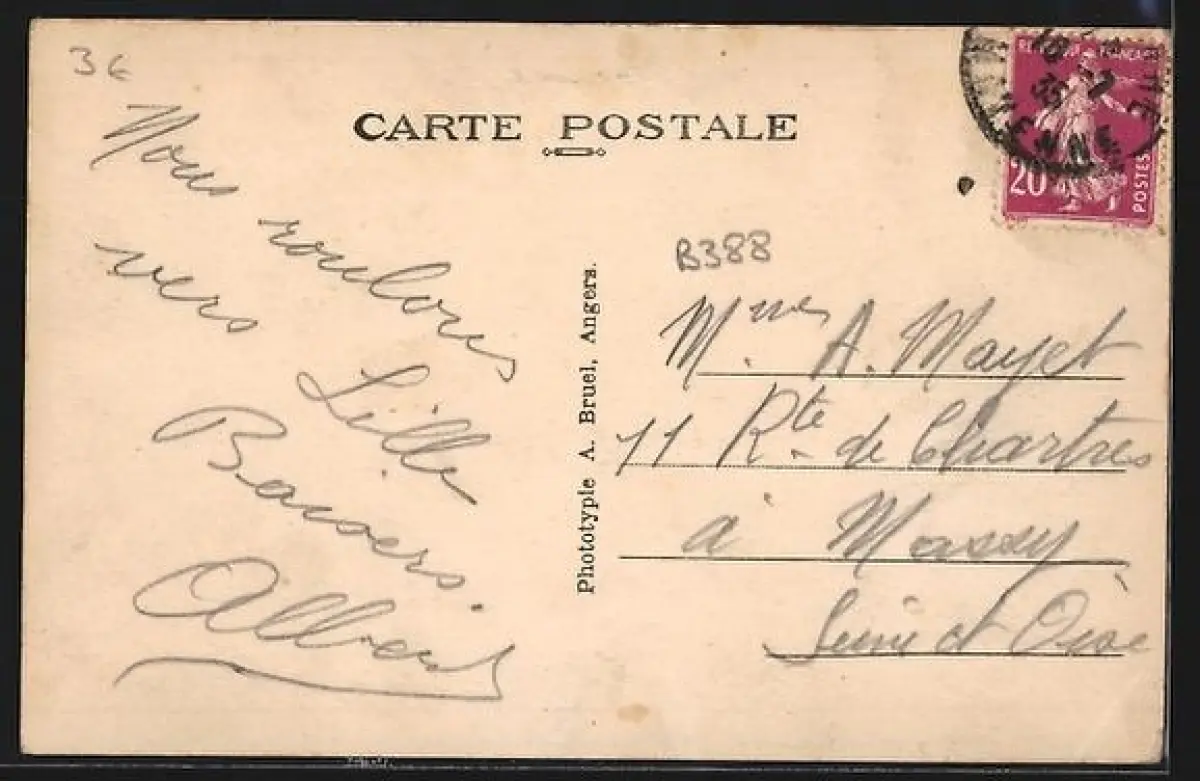 36
CARTE POSTALE
REPUBLIQUE FRANÇAISE
20
POSTES
Nous roulons
vers Lille
Baisers.
Albert
Phototypie A. Bruel, Angers.
B388
Mmes A. Mayet
11 Rte de Chartres
à Massy
Seine et Oise